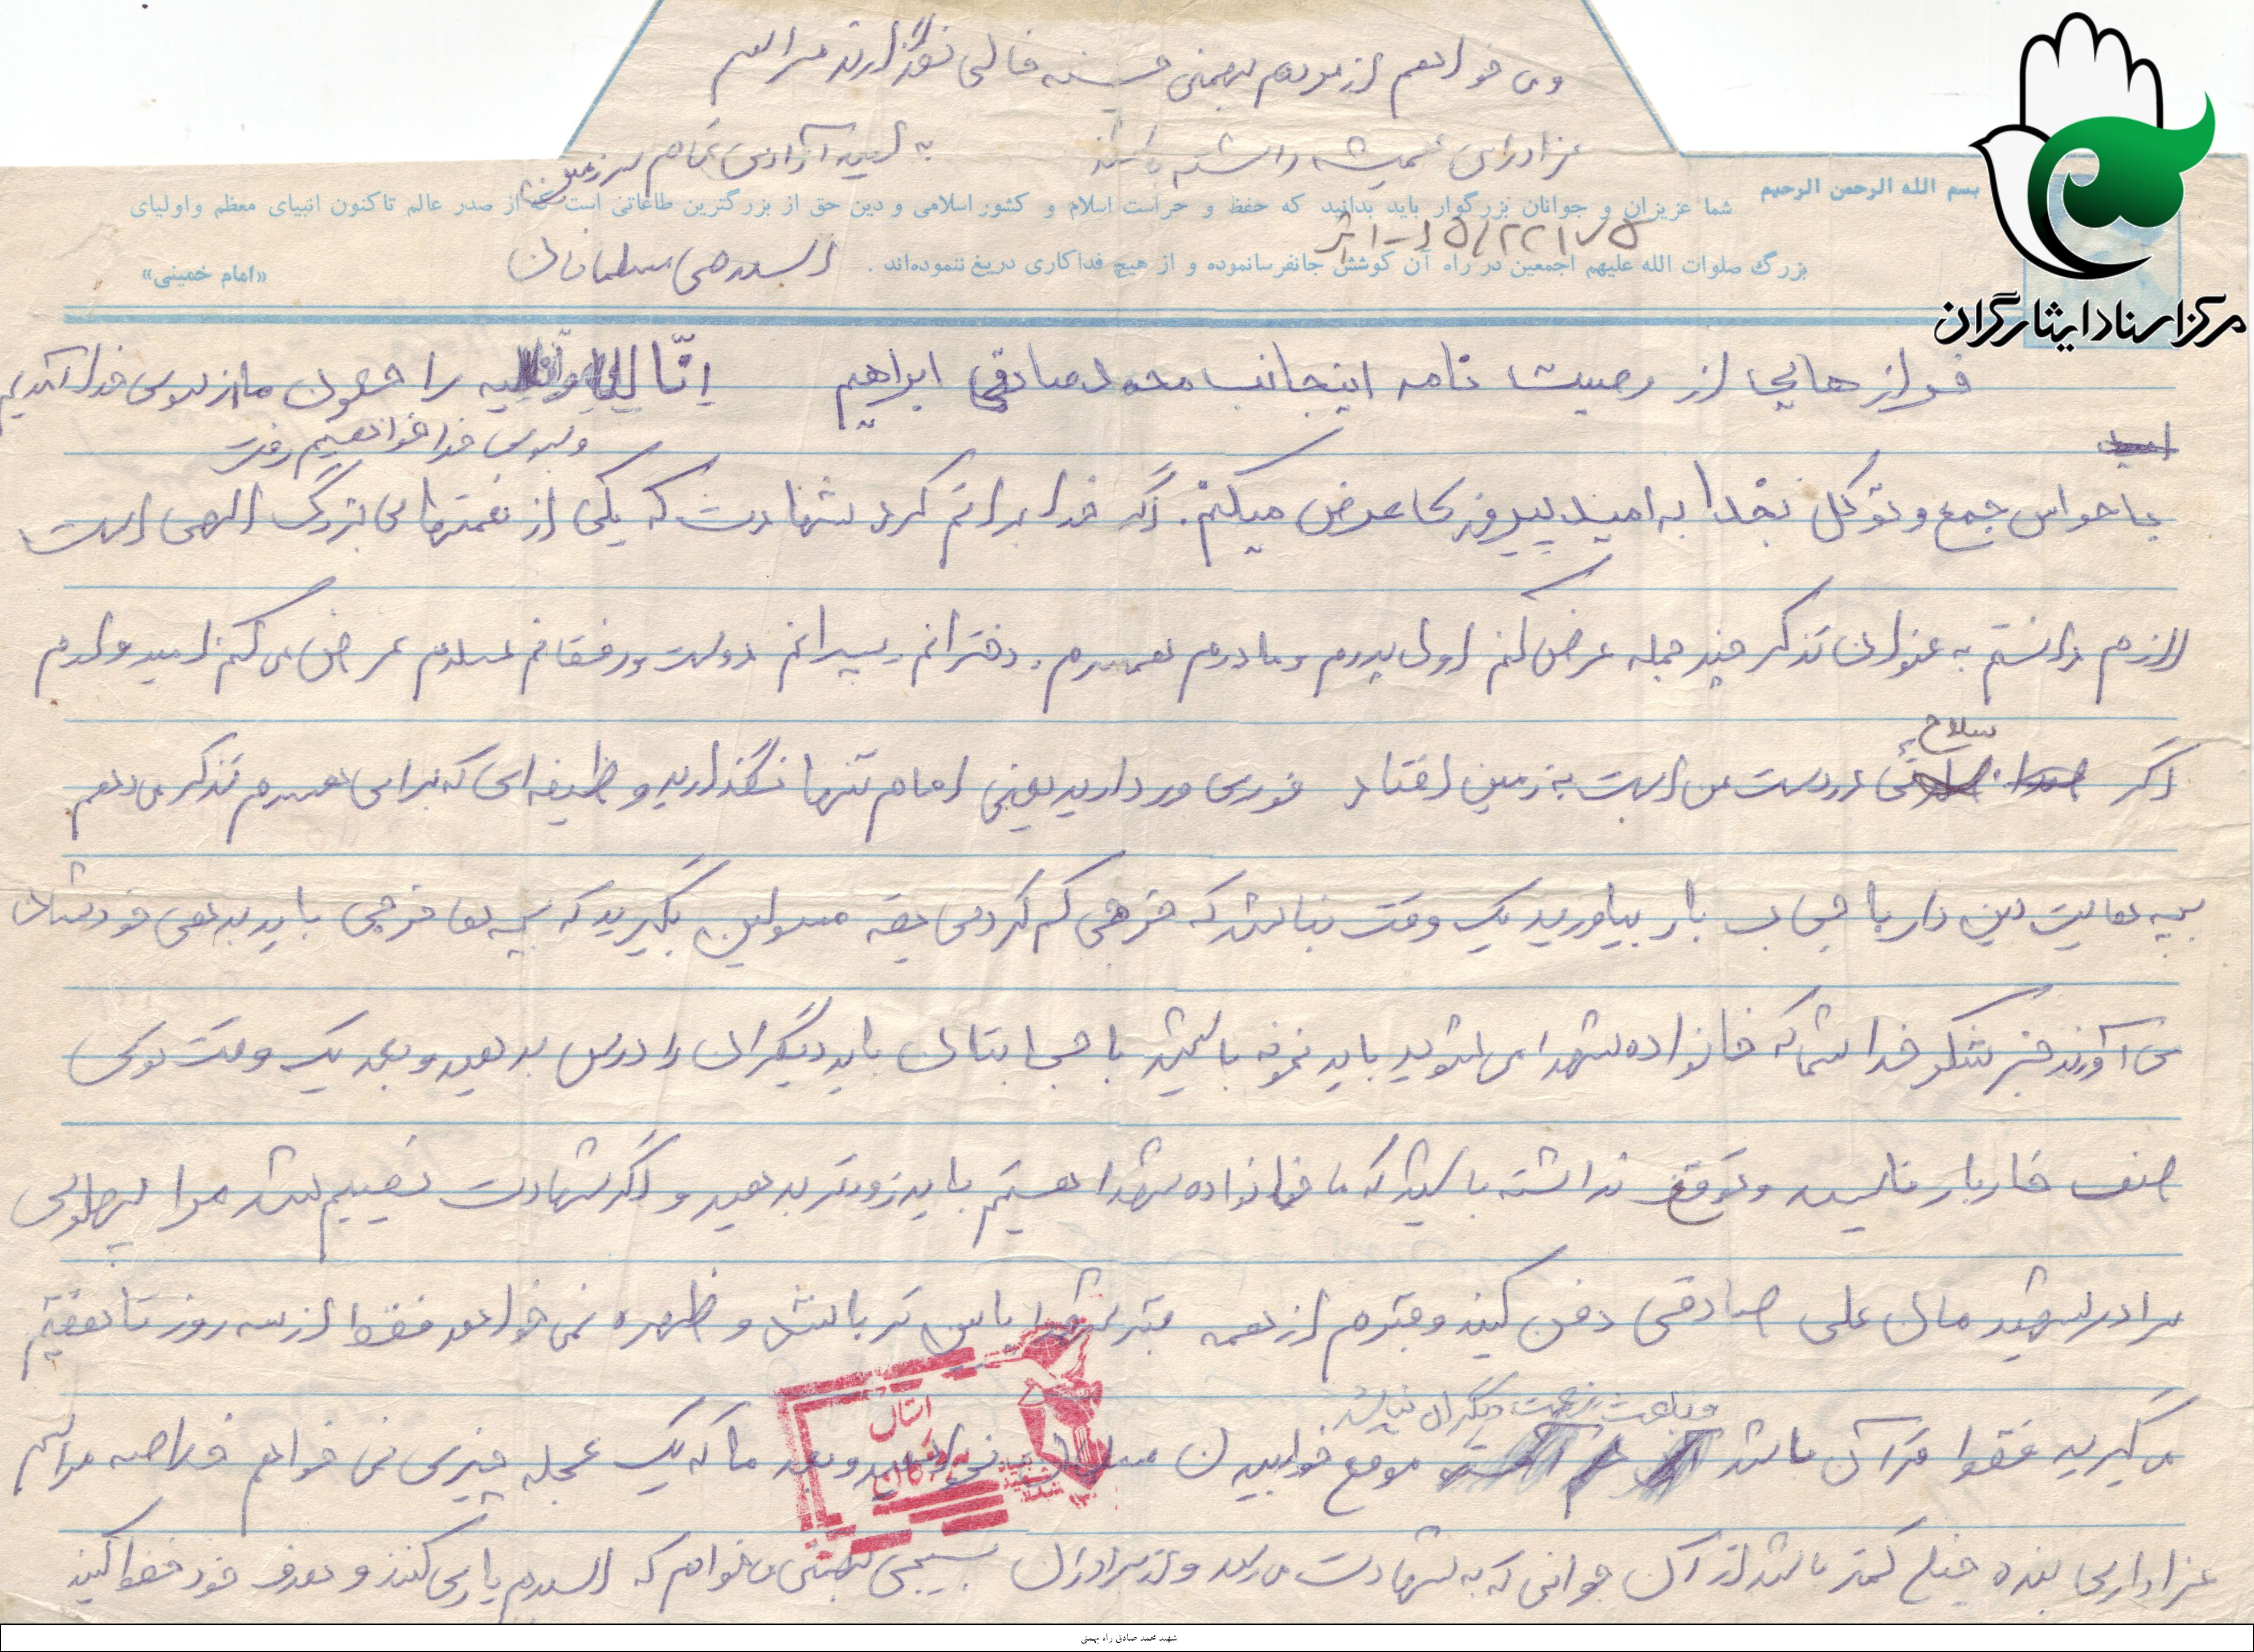 و می خواهم از مردم بهمنی حسینیه خالی نگذارند مراسم
عزاداری همیشه داشته باشند به امید آزادی تمام سرزمین
بسم الله الرحمن الرحیم
شما عزیزان و جوانان بزرگوار باید بدانید که حفظ و حراست اسلام و کشور اسلامی و دین حق از بزرگترین طاعاتی است که از صدر عالم تاکنون انبیای معظم و اولیای
بزرگ صلوات الله علیهم اجمعین در راه آن کوشش جانفرسا نموده و از هیچ فداکاری دریغ ننموده‌اند.
«امام خمینی»
مرکز اسناد ایثارگران
فرازهایی از وصیت نامه اینجانب محمد صادقی ابراهیم انّا لله و انا الیه راجعون ما از بسوی خدا آمدیم
و بسوی خدا خواهیم رفت
با حواس جمع و توکل بخدا به امید پیروزی عرض میکنم. اگر خدا برایم کرد شهادت که یکی از نعمتهای بزرگ الهی است
لازم دانستم به عنوان تذکر چند جمله عرض کنم اول پدرم و مادرم همسرم، دخترانم پسرانم دوست و رفقانم سلام عرض می کنم امیدوارم
سلاح
اگر در دست من است به زمین افتاد فوری وردارید یعنی امام تنها نگذارید وظیفه ای که برای همسرم تذکر می دهم
بچه هایت دین دار با حجاب بار بیاورید یک وقت نباشد که خرجی کم کردی یقه مسولین بگیرید که بچه ها خرجی باید بدهی خودشان
می آورند خبر شکر خدا شما که خانواده شهدا می شوید باید نمونه باشید با حجابتان باید دیگران را درس بدهید و بعد یک وقت توی
صنف خاربار نالیسد و توقع نداشته باشید که ما خانواده شهدا هستیم باید زودتر بدهید و اگر شهادت نصیبم شد مرا پهلوی
برادر شهید مان علی صادقی دفن کنید و قبرم از همه قبر شهدا پایین تر باشد و ظهره نمی خواهد فقط از سه روز تا هفتم
و باعث زحمت دیگران نباشد
می گیرید فقط قرآن باشد موقع خوابیدن و بعد ما که یک حجله چیزی نمی خواهم خلاصه مراسم
عزاداری بنده خیلی کمتر باشد از آن جوانی که به شهادت می رسد و از برادران بسیجی بهمنی می خواهم که اسلام یاری کنند و هدف خود حفظ کنید
شهید محمد صادق راه بهمنی